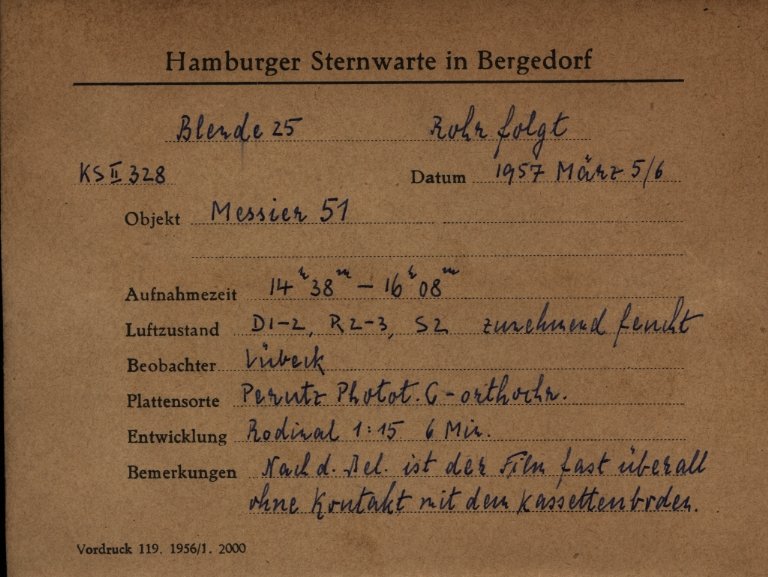 Hamburger Sternwarte in Bergedorf
Blende 25 Rohr folgt
KS II 328 Datum 1957 März 5/6
Objekt Messier 51
Aufnahmezeit 14h 38m – 16h 08m
Luftzustand D1-2, R2-3, S2 zunehmend feucht
Beobachter Lübeck
Plattensorte Perutz Photot. C-orthochr.
Entwicklung Rodinal 1:15 6 Min.
Bemerkungen Nach d. Bel. ist der Film fast überall
ohne Kontakt mit dem Kassettenboden.
Vordruck 119. 1956/1. 2000